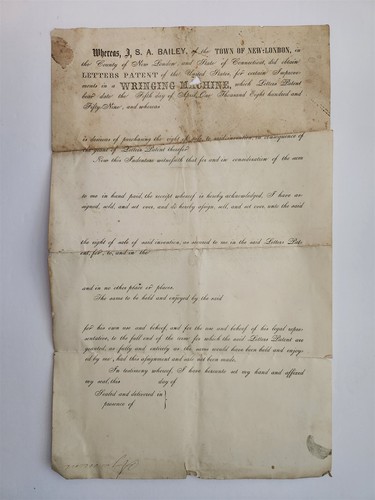 Whereas, I, S. A. BAILEY, of the TOWN OF NEW-LONDON, in
the County of New London and State of Connecticut, did obtain
LETTERS PATENT of the United States, for certain Improve-
ments in a WRINGING MACHINE, which Letters Pat-
ent date the Fifth day of April One Thousand Eight hundred and
Fifty-Nine, and whereas
is desirous of purchasing the right of in said invention in consequence of
the grant of Letters Patent therefor
Now this Indenture witnesseth that for and in consideration of the sum
to me in hand paid, the receipt whereof is hereby acknowledged, I have as-
signed, sold, and set over, and do hereby assign, sell, and set over, unto the said
the right of sale of said invention, as secured to me in the said Letters Pat-
ent, for, to, and in the
and in no other place or places.
The same to be held and enjoyed by the said
for his own use and behoof, and for the use and behoof of his legal repre-
sentatives, to the full end of the term for which the said Letters Patent are
granted, as fully and entirely as the same would have been held and enjoy-
ed by me, had this assignment and sale not been made.
In testimony whereof, I have hereunto set my hand and affixed
my seal, this day of
Sealed and delivered in
presence of